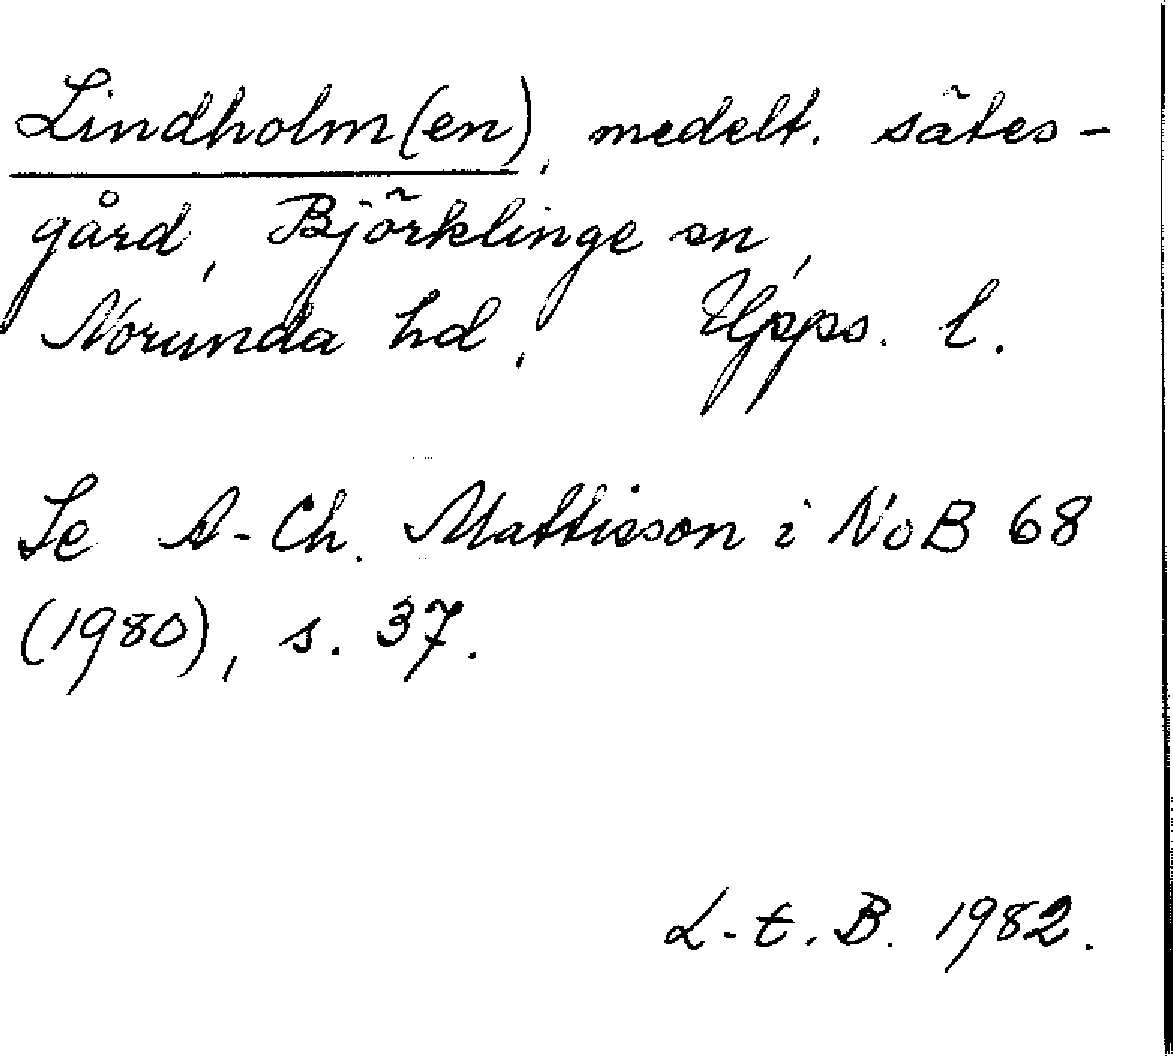 Lindholm(en), medelt. sätes-
gård, Björklinge sn,
Norunda hd, Upps. l.
Se A-Ch. Mattisson i NoB 68
(1980), s. 37.
L-E. B. 1982.